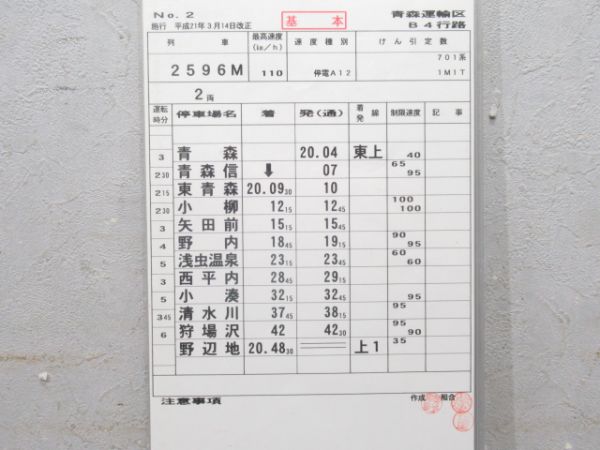 No. 2 基本 青森運輸区
施行 平成21年3月14日改正 B4行路
列車 最高速度(km/h) 速度種別 けん引定数
2596M 110 停電A12 701系 1M1T
2両
運転時分 停車場名 着 発(通) 着発線 制限速度 記事
3 青森 20.04 東上 40
230 青森信 ⬇ 07 65 95
215 東青森 20.0930 10
230 小柳 1215 1245 100 100
3 矢田前 1515 1545
4 野内 1845 1915 90 95
5 浅虫温泉 2315 2345 60 60
3 西平内 2845 2915
5 小湊 3215 3245 95
345 清水川 3745 3815 95
6 狩場沢 42 4230 95 90
野辺地 20.4830 上1 35
注意事項 作成 照合